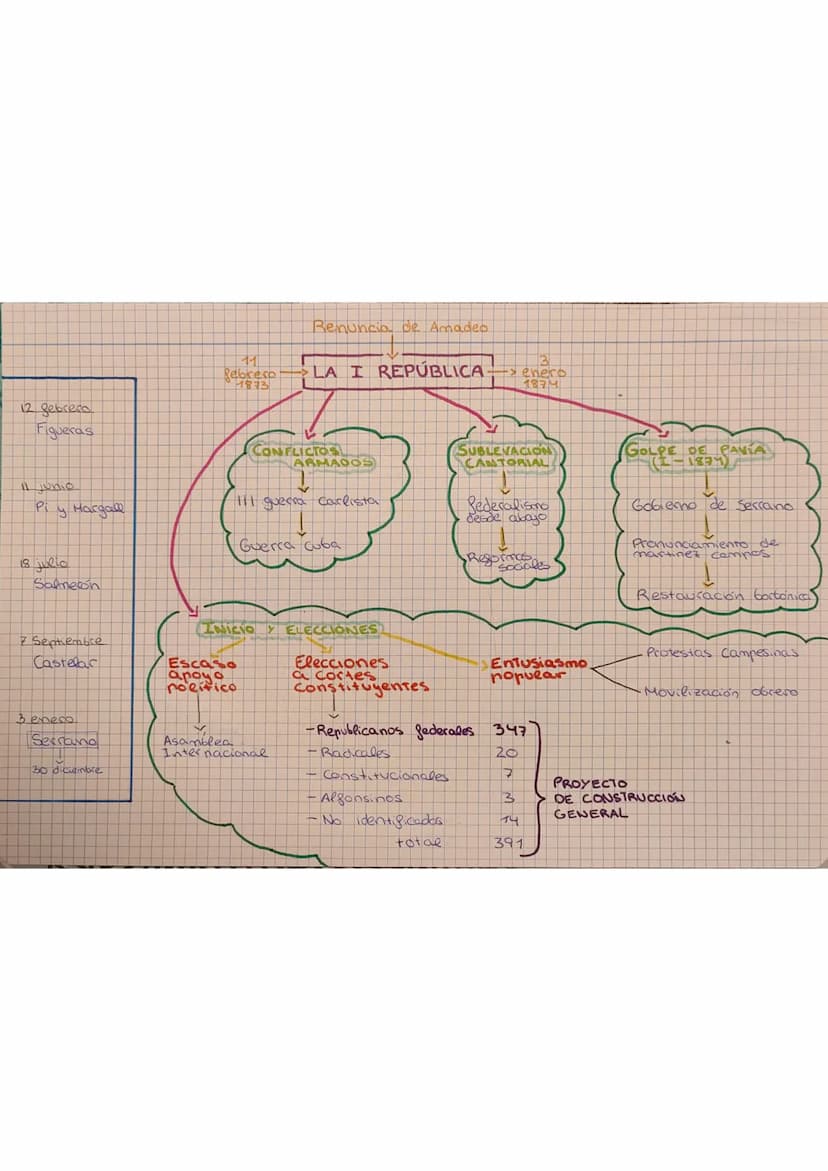 Renuncia de Amadeo
11
febrero
1873
LA I REPÚBLICA
3
enero
1874
12 febrero
Figueras
11 junio
Pi y Margall
18 julio
Salmerón
7 Septiembre
Castelar
3 enero
Serrano
30 diciembre
CONFLICTOS
ARMADOS
III guerra Carlista
Guerra Cuba
SUBLEVACIÓN
CANTORIAL
Federalismo
desde abajo
Reformas
sociales
GOLPE DE PAVÍA
(I-1874)
Gobierno de Serrano
Pronunciamiento de
martinez campos
Restauración borbónica
INICIO Y ELECCIONES
Escaso
apoyo
político
Asamblea
Internacional
Elecciones
a Cortes
Constituyentes
- Republicanos federales 347
- Radicales 20
- Constitucionales 7
- Alfonsinos 3
- No identificados 14
total 391
PROYECTO
DE CONSTRUCCIÓN
GENERAL
Entusiasmo
popular
Protestas Campesinas
Movilización obrera